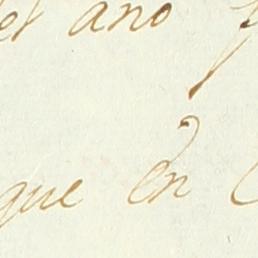 el ano
que en